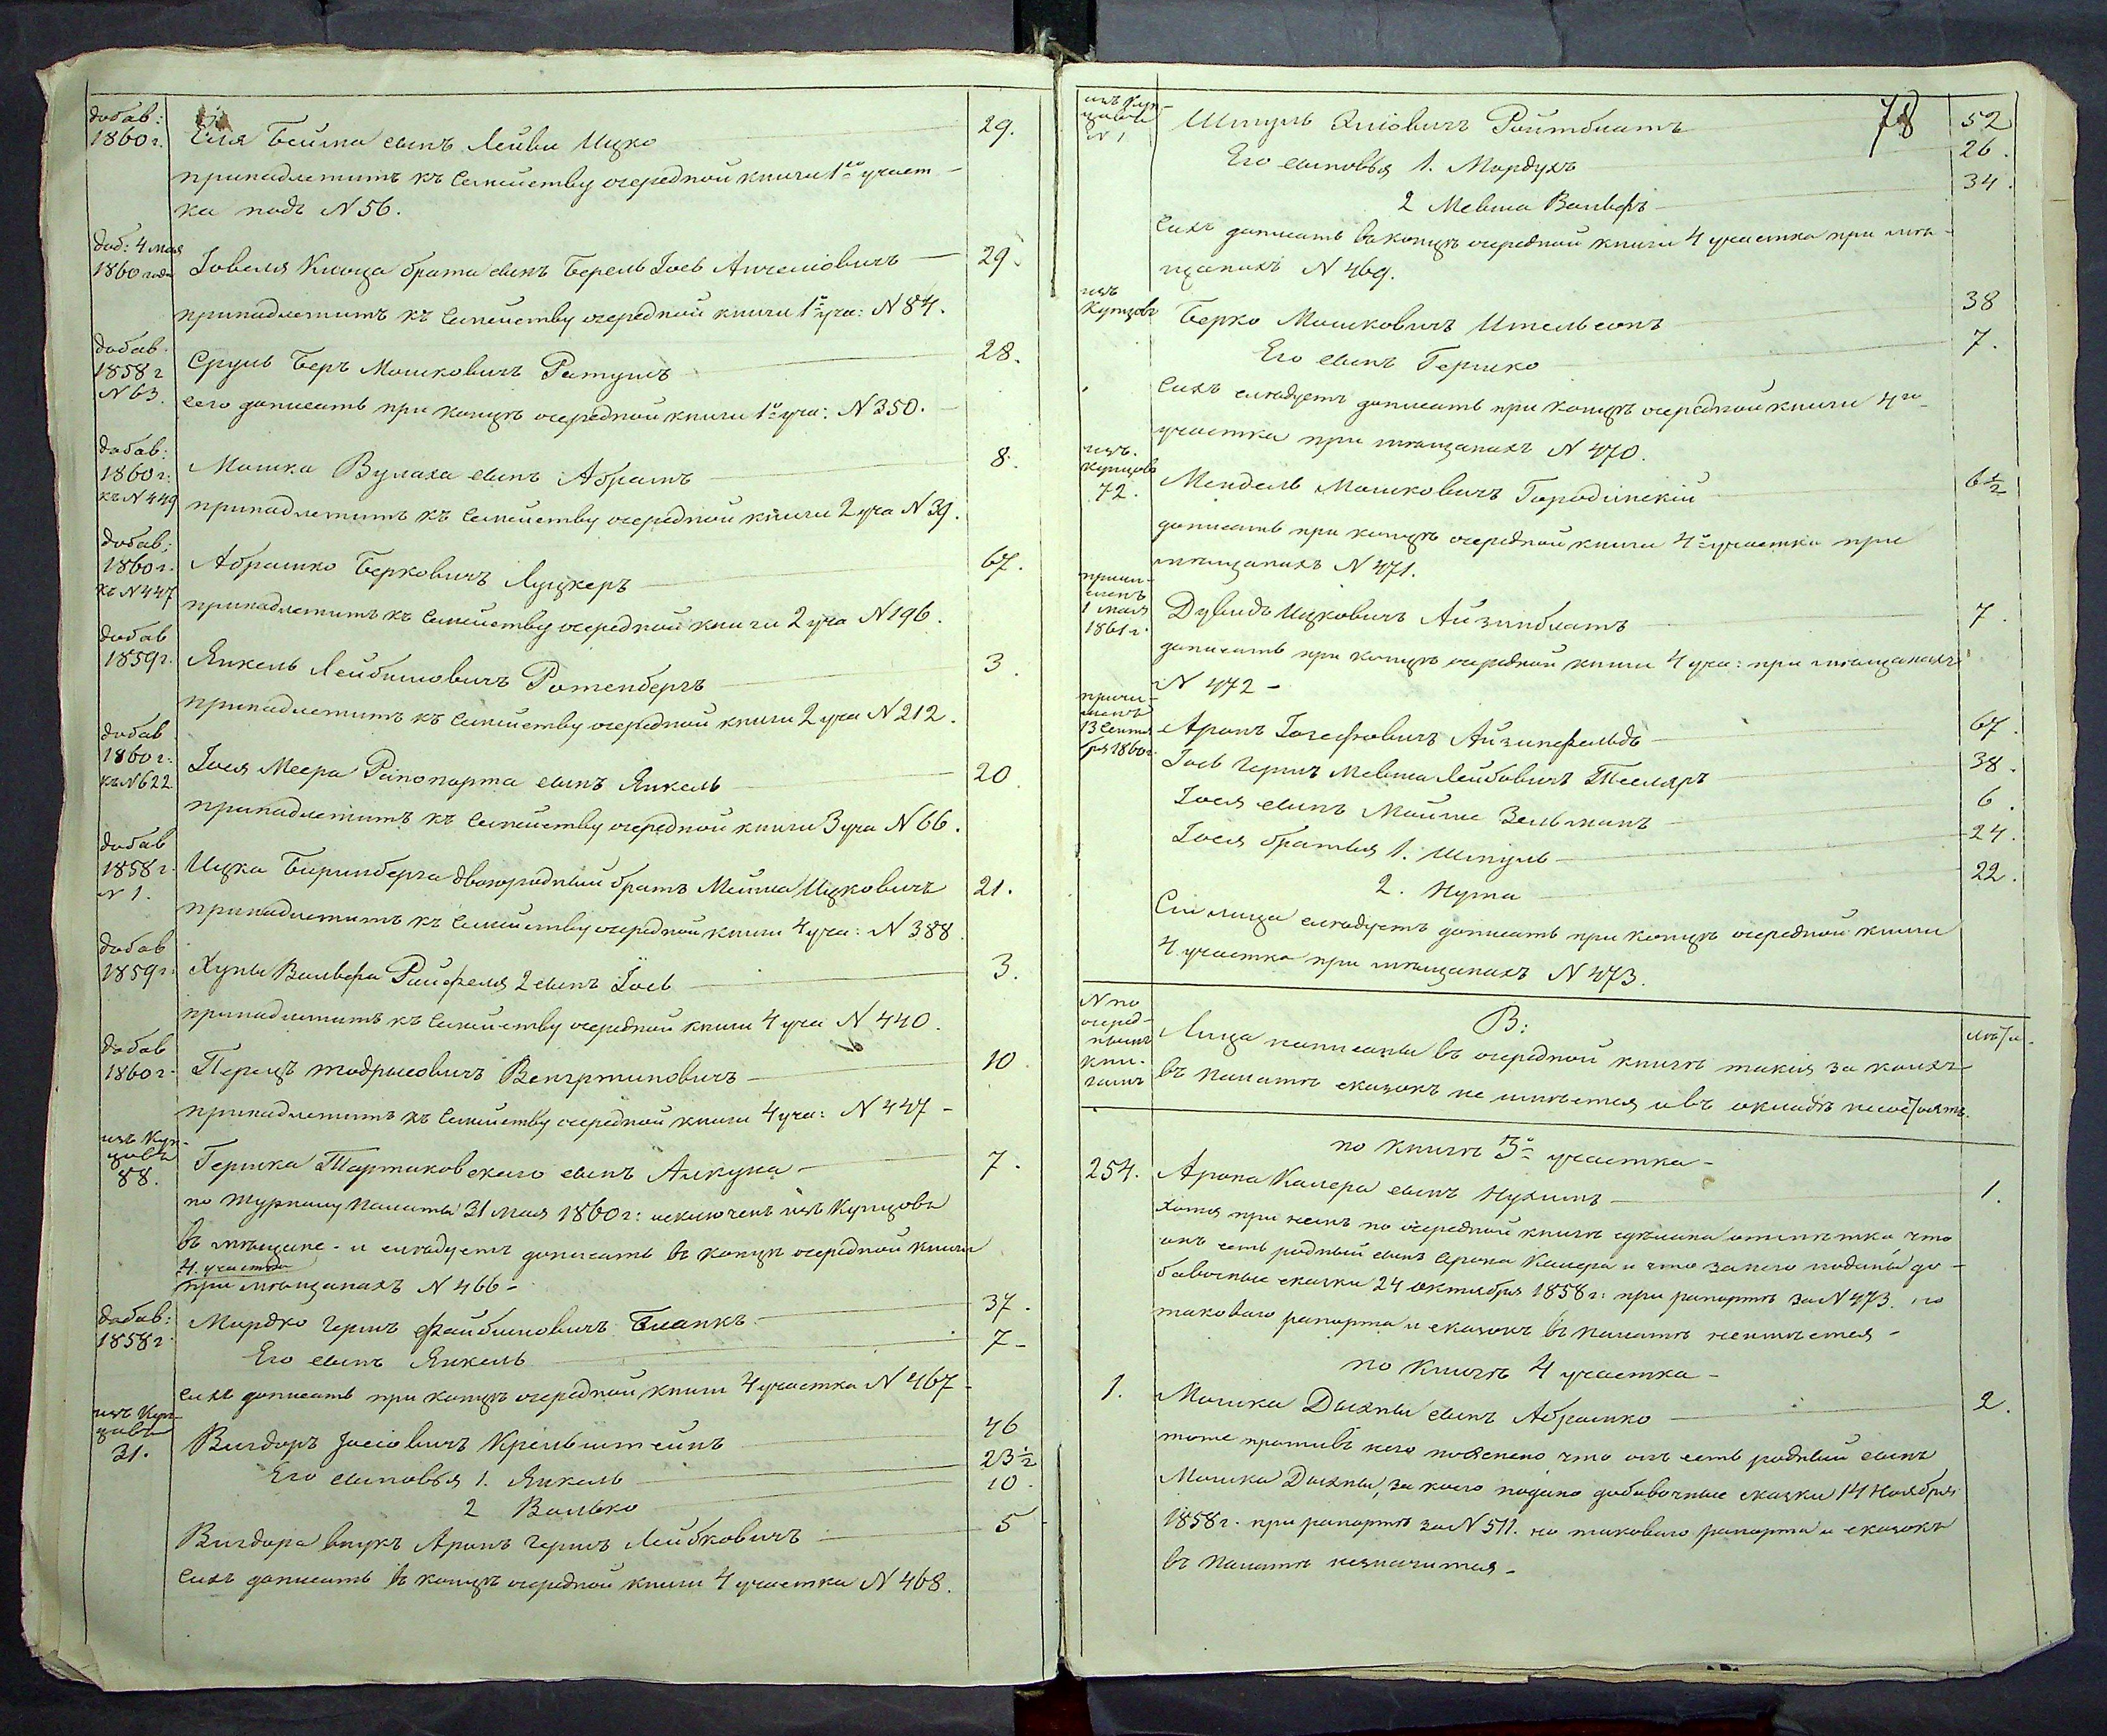 добав:
1860 г. Еля Бейма сынъ Лейви Ицко 29.
принадлежитъ къ семейству очередной книги 1го участ-
ка подъ N 56.
доб: 4 мая
1860 года Іовеля Клюца брата сынъ Берель Іосъ Анчеліовичъ 29.
принадлежитъ къ семейству очередной книги 1о уча: N 84.
добав.
1858 г Сруль Беръ Мошковичъ Ратушъ 28.
N 63. сего дописать при концѣ очередной книги 1о уча: N 350.
добав:
1860 г: Мошка Вулаха сынъ Абрамъ 8.
къ N 449 принадлежитъ къ семейству очередной книги 2 уча N 39.
добав:
1860 г. Абрашко Берковичъ Луцкеръ 67.
къ N 447 принадлежитъ къ семейству очередной книги 2 уча N 196.
добав
1859 г. Янкель Лейбишовичъ Ротенбергъ 3.
принадлежитъ къ семейству очередной книги 2 уча N 212.
добав
1860 г: Іося Меера Рапопорта сынъ Янкель 20.
къ N 622 принадлежитъ къ семейству очередной книги 3 уча N 66.
добав
1858 г. Ицка Биринберга двоюродный братъ Мейша Ицковичъ 21.
N 1. принадлежитъ къ семейству очередной книги 4 уча: N 388.
добав
1859 г: Хуны Вольфа Райфеля 2 сынъ Іосъ 3.
принадлежитъ къ семейству очередной книги 4 уча N 440.
добав
1860 г. Перецъ Тодрысовичъ 10.
принадлежитъ къ семейству очередной книги 4 уча: N 447 -
изъ Куп-
цовъ Гершка Тартаковскаго сынъ Алкуна 7.
88. по журналу Палаты 31 Мая 1860 г: исключенъ изъ Купцовъ
въ мѣщане - и слѣдуетъ дописать въ концѣ очередной книги
4. участка
при мѣщанахъ N 466 -
добав:
1858 г. Мордко Гершъ Файбишовичъ Бланкъ 37.
Его сынъ Янкель 7 -
сихъ дописать при концѣ очередной книги 4 участка N 467 -
изъ Куп-
цовъ
31. Вигдоръ Іосіовичъ Крельштейнъ 46
Его сыновья 1. Янкель 23 1/2
2 Волько 10.
Вигдора внукъ Аронъ Гершъ Лейбковичъ 5
сихъ дописать въ концѣ очередной книги 4 участка N 468.
78
изъ Куп-
цовъ
N 1 Шмуль Эліовичъ Ройтблатъ 52
Его сыновья 1. Мордухъ 26.
2 Мевша Вольфъ 34.
сихъ дописать въ концѣ очередной книги 4 участка при мѣ-
щанахъ N 469.
изъ
Купцовъ Берко Мошковичъ Ительсонъ 38
Его сынъ Гершко 7.
сихъ слѣдуетъ дописать при концѣ очередной книги 4 го
участка при мѣщанахъ N 470.
изъ
купцовъ
72. Мендель Мошковичъ Городинскій 6 1/2
дописать при концѣ очередной книги 4о участка при
мѣщанахъ N 471.
причи-
сленъ
1 мая
1861 г. Дувидъ Ицковичъ Айзинблатъ 7.
дописать при концѣ очередной книги 4 уча: при мѣщанахъ
N 472 -
причи-
сленъ
13 Сентя
бря 1860 г. Аронъ Іозефовичъ Айзинфельдъ 67.
Іосъ Гершъ Мевша Лейбовичъ Тесляръ 38.
Іося сынъ Мойше Зельманъ 6.
Іося братья 1. Шмуль 24.
2. Нута 22.
Сіи лица слѣдуетъ дописать при концѣ очередной книги
4 участка при мѣщанахъ N 473.
N по
очеред-
нымъ
кни-
гамъ
В:
лѣта.
Лица написаны въ очередной книгѣ такія за коихъ
въ Палатѣ сказокъ не имѣется и въ окладѣ несостоятъ.
по книгѣ 3о участка -
254. Арона Калера сынъ Нухимъ 1.
хотя при немъ по очередной книгѣ сдѣлана отмѣтка, что
онъ есть родный сынъ Арона Калера и что за него поданы до-
бавочные сказки 24 октября 1858 г: при рапортѣ за N 473. но
таковаго рапорта и сказокъ въ Палатѣ неимѣется -
по книгѣ 4 участка -
1. Мошка Дыхны сынъ Абрашко 2.
тоже противъ него пояснено что онъ есть родный сынъ
Мошка Дыхны, за коего подано добавочные сказки 14 Ноября
1858 г. при рапортѣ за N 511. но таковаго рапорта и сказокъ
въ Палатѣ незначится -